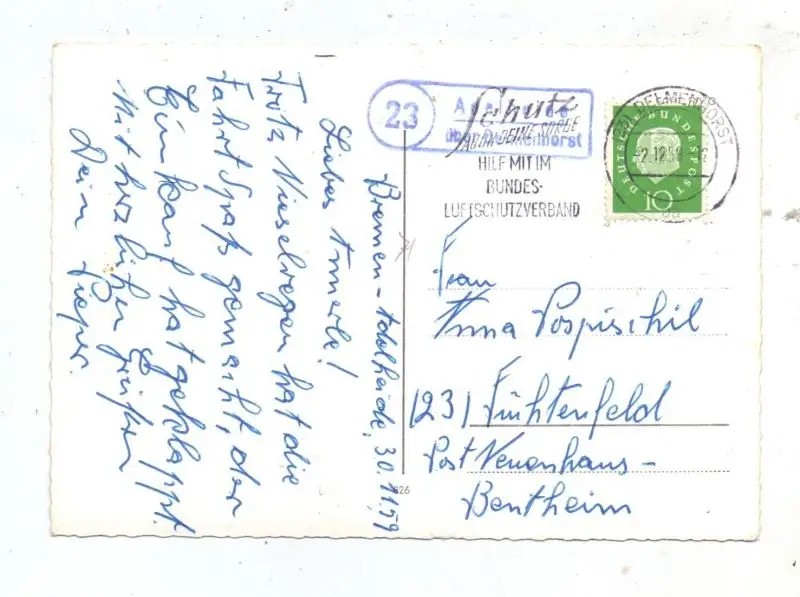 Bremen-Adelheide, 30.11.59
Lieber Annerle!
Trotz Nieselregen hat die
Fahrt Spaß gemacht, der
Einkauf hat geklappt.
Mit herzlichen Grüßen
Dein
23
über Delmenhorst
Schutz
AUCH DEINE SORGE
HILF MIT IM
BUNDES-
LUFTSCHUTZVERBAND
DELMENHORST
DEUTSCHE BUNDESPOST
10
Frau
Anna Pospischil
(23) Füchtenfeld
Post Neuenhaus-
Bentheim
826